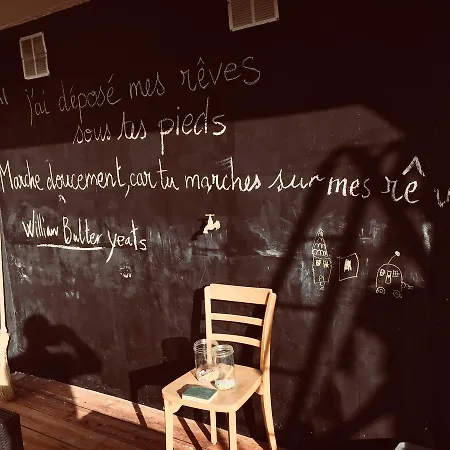 j'ai déposé mes rêves
sous tes pieds
Marche doucement, car tu marches sur mes rê
William Butler yeats